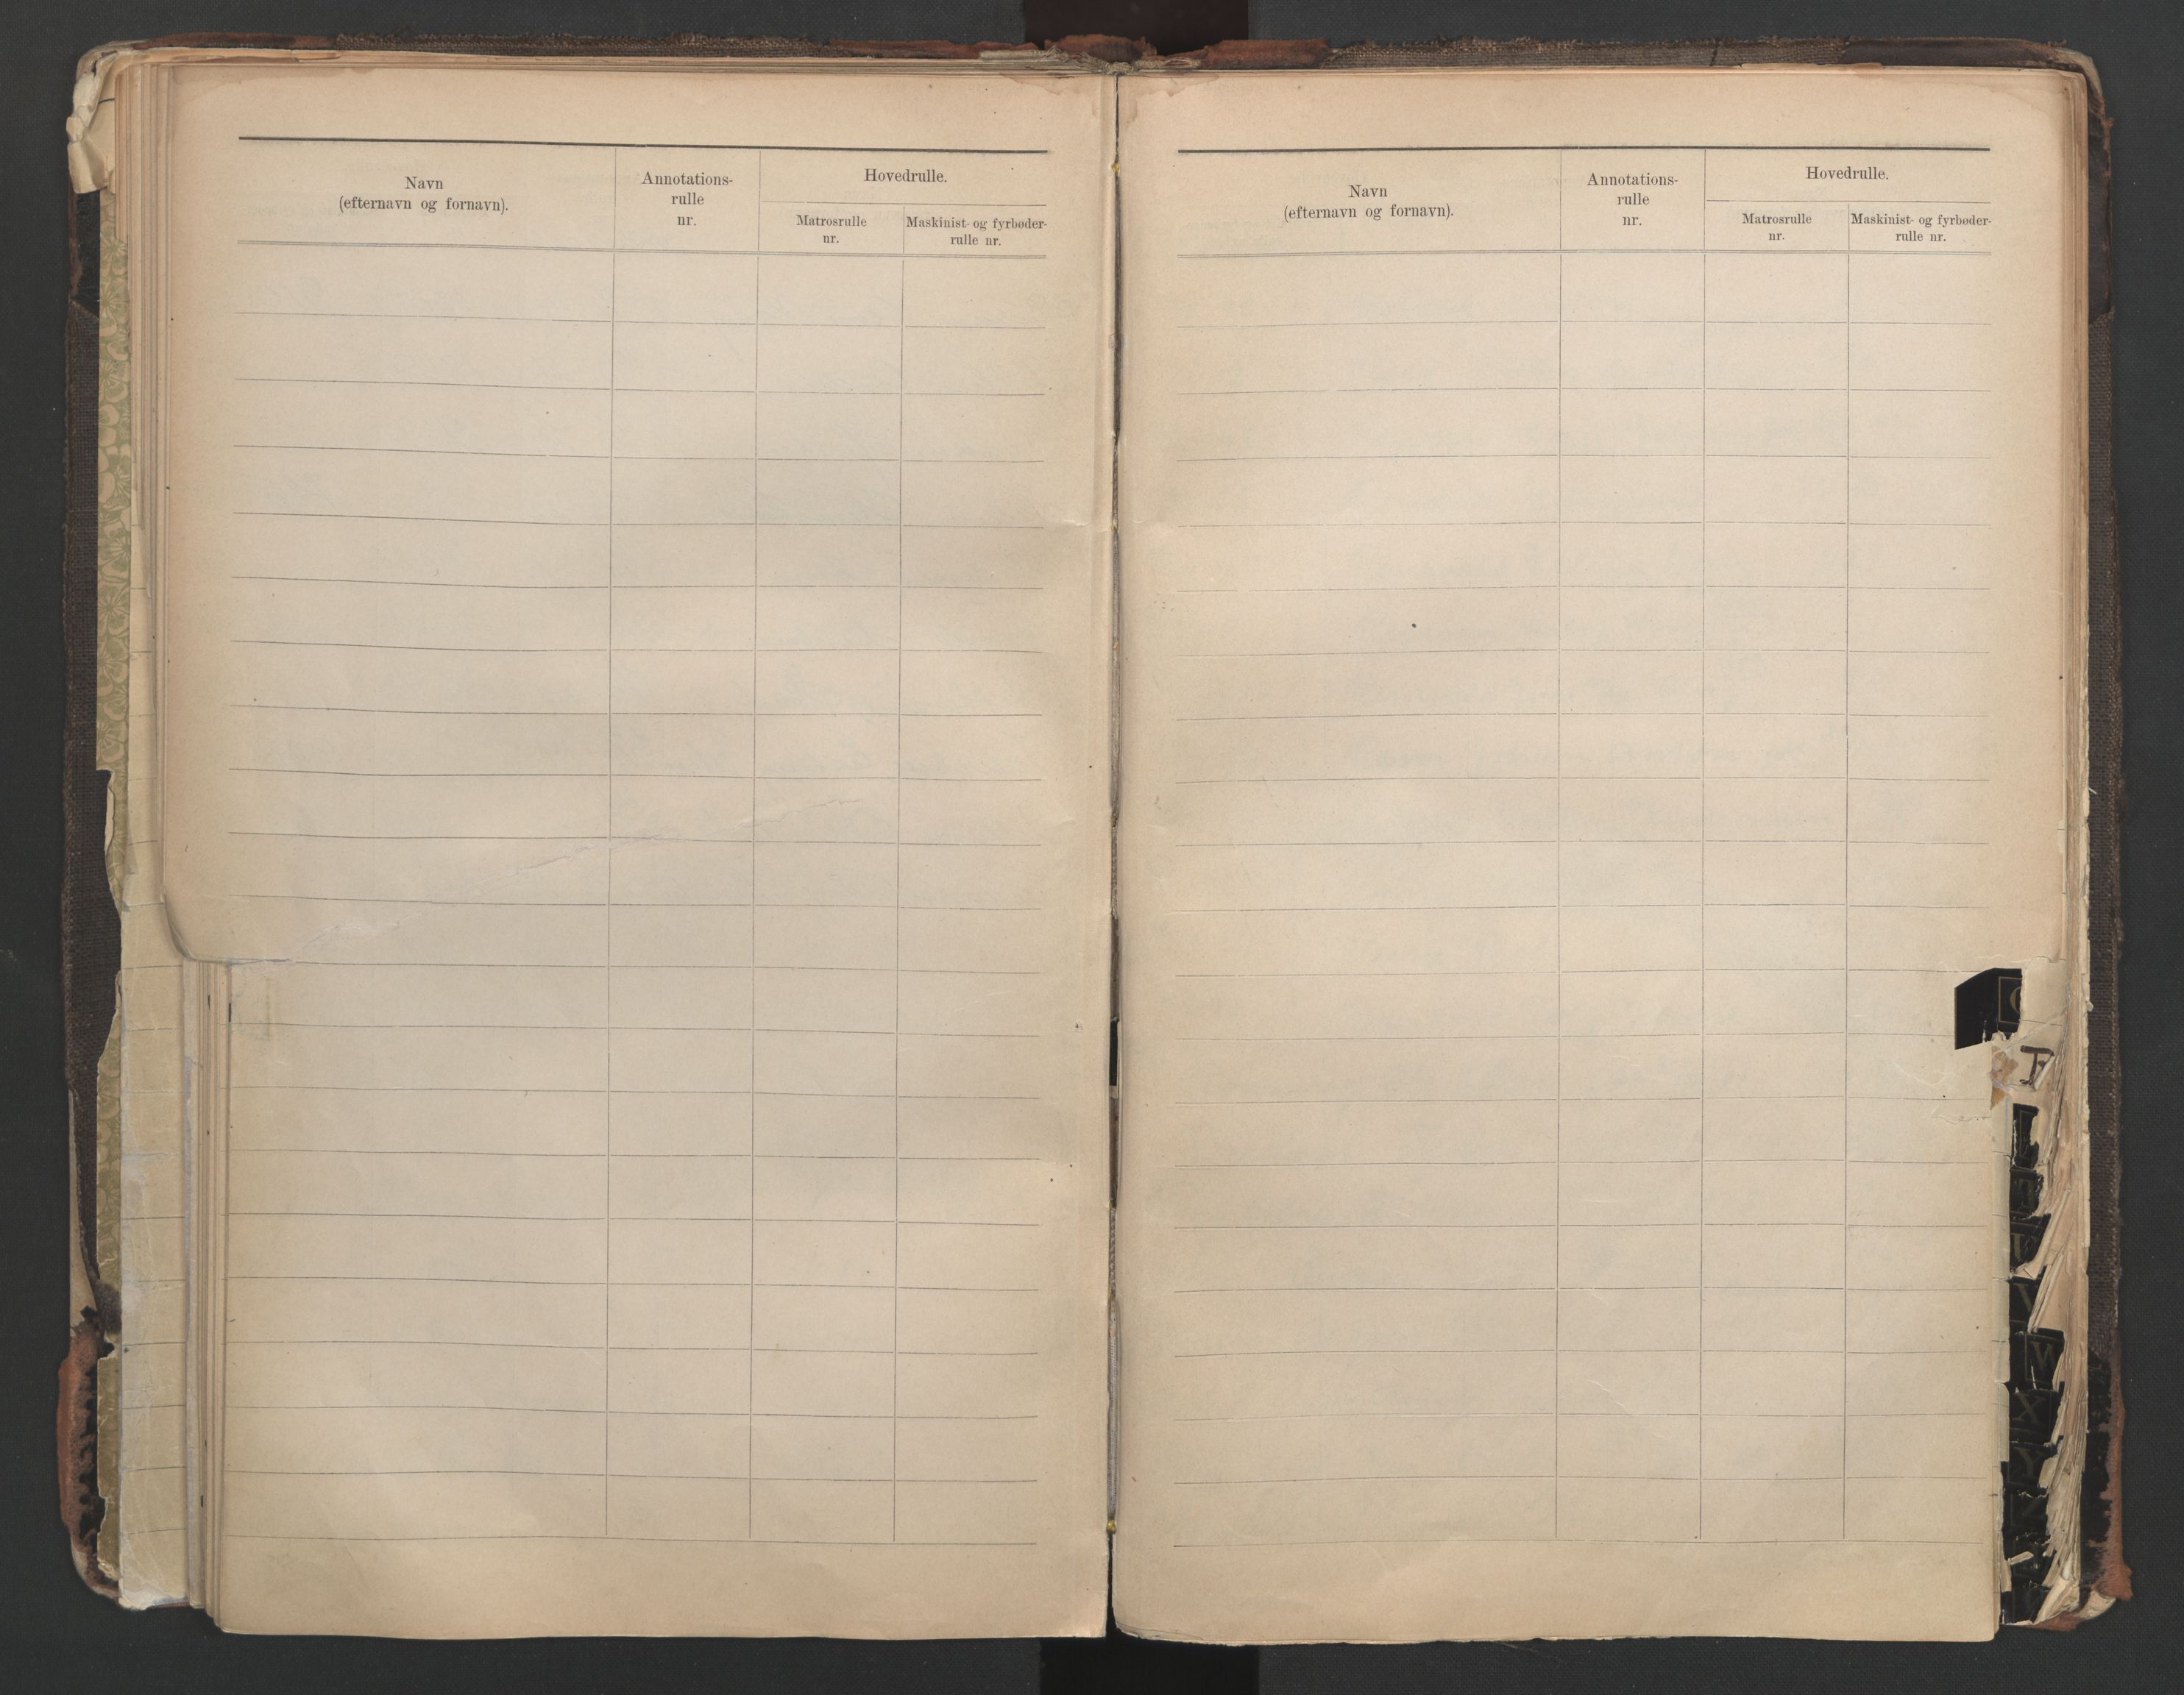 Navn
(efternavn og fornavn).
Annotations-
rulle
nr.
Hovedrulle.
Matrosrulle
nr.
Maskinist- og fyrbøder-
rulle nr.
Navn
(efternavn og fornavn).
Annotations-
rulle
nr.
Hovedrulle.
Matrosrulle
nr.
Maskinist- og fyrbøder-
rulle nr.
L
V
W
X
Y